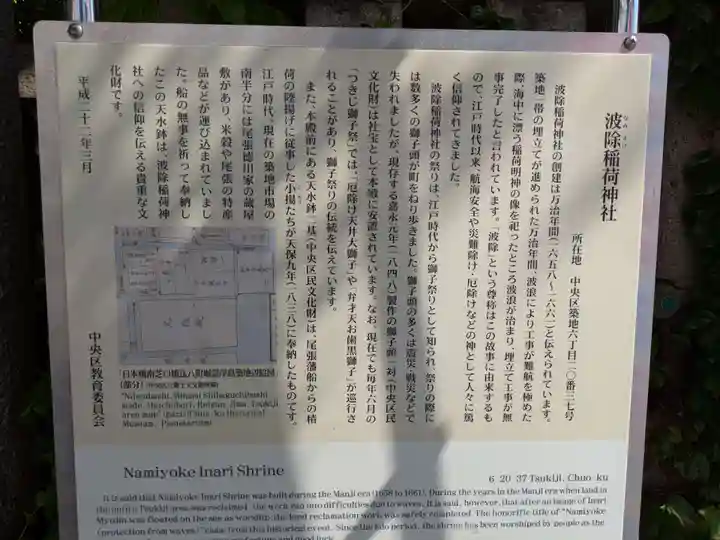 波除稲荷神社
なみよけ
所在地 中央区築地六丁目二〇番三七号
波除稲荷神社の創建は万治年間(一六五八〜一六六一)と伝えられています。
築地一帯の埋立てが進められた万治年間、波浪により工事が難航を極めた
際、海中に漂う稲荷明神の像を祀ったところ波浪が治まり、埋立て工事が無
事完了したと言われています。「波除」という尊称はこの故事に由来するも
ので、江戸時代以来、航海安全や災難除け・厄除けなどの神として人々に篤
く信仰されてきました。
波除稲荷神社の祭りは、江戸時代から獅子祭りとして知られ、祭りの際に
は数多くの獅子頭が町をねり歩きました。獅子頭の多くは震災・戦災などで
失われましたが、現存する嘉永元年(一八四八)製作の獅子頭一対(中央区民
文化財)は社宝として本殿に安置されています。なお、現在でも毎年六月の
「つきじ獅子祭」では、「厄除け天井大獅子」や「弁才天お歯黒獅子」が巡行さ
れることがあり、獅子祭りの伝統を伝えています。
また、本殿前にある天水鉢二基(中央区民文化財)は、尾張藩船からの積
荷の陸揚げに従事した小揚たちが天保九年(一八三八)に奉納したものです。
江戸時代、現在の築地市場の
南半分には尾張徳川家の蔵屋
敷があり、米穀や尾張の特産
品などが運び込まれていまし
た。船の無事を祈って奉納し
たこの天水鉢は、波除稲荷神
社への信仰を伝える貴重な文
化財です。
平成二十二年三月
「日本橋南芝口橋迄八町堀霊岸島築地辺絵図」
(部分)
中央区教育委員会
Namiyoke Inari Shrine
6-20-37 Tsukiji, Chuo-ku
It is said that Namiyoke Inari Shrine was built during the Manji era (1658 to 1661). During the years in the Manji era when land in
the entire Tsukiji area was reclaimed, the work ran into difficulties due to waves. It is said, however, that after an image of Inari
Myojin was floated on the sea as worship, the land reclamation work was safely completed. The honorific title of "Namiyoke
(protection from waves)" came from this historical event. Since the Edo period, the shrine has been worshiped by people as the